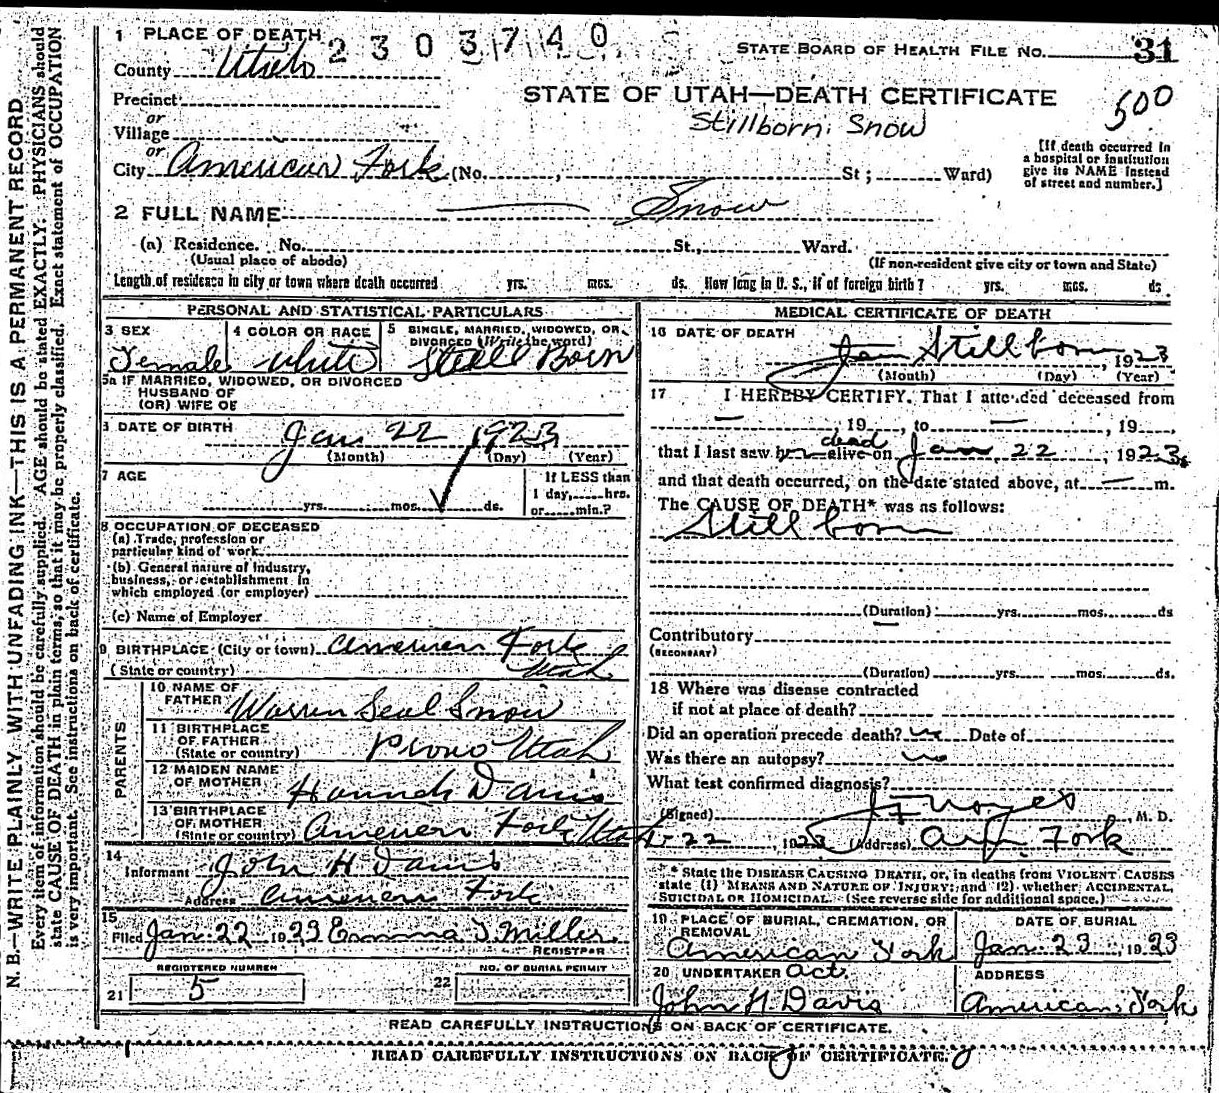 N. B.—WRITE PLAINLY, WITH UNFADING INK—THIS IS A PERMANENT RECORD
Every item of information should be carefully supplied. AGE should be stated EXACTLY. PHYSICIANS should
state CAUSE OF DEATH in plain terms, so that it may be properly classified. Exact statement of OCCUPATION
is very important. See instructions on back of certificate.
1 PLACE OF DEATH 2303740
STATE BOARD OF HEALTH FILE NO. 31
County Utah
STATE OF UTAH—DEATH CERTIFICATE 500
Precinct
or
Village
Stillborn Snow
or
City American Fork (No. , St; Ward)
[If death occurred in
a hospital or institution
give its NAME instead
of street and number.]
2 FULL NAME — Snow
(a) Residence. No. St., Ward.
(Usual place of abode) (If non-resident give city or town and State)
Length of residence in city or town where death occurred yrs. mos. ds. How long in U. S., if of foreign birth? yrs. mos. ds
PERSONAL AND STATISTICAL PARTICULARS
3 SEX Female
4 COLOR OR RACE white
5 SINGLE, MARRIED, WIDOWED, OR
DIVORCED (Write the word)
Still Born
5a IF MARRIED, WIDOWED, OR DIVORCED
HUSBAND OF
(OR) WIFE OF
6 DATE OF BIRTH Jan 22 1923
(Month) (Day) (Year)
7 AGE
yrs. mos. ds.
If LESS than
1 day, hrs.
or min.?
8 OCCUPATION OF DECEASED
(a) Trade, profession or
particular kind of work
(b) General nature of industry,
business, or establishment in
which employed (or employer)
(c) Name of Employer
9 BIRTHPLACE (City or town) American Fork
(State or country) Utah
PARENTS
10 NAME OF
FATHER Warren Seal Snow
11 BIRTHPLACE
OF FATHER
(State or country) Provo Utah
12 MAIDEN NAME
OF MOTHER Hannah Davis
13 BIRTHPLACE
OF MOTHER
(State or country) American Fork Utah
14
Informant John H Davis
Address American Fork
15
Filed Jan 22 1923 Emma J. Miller
REGISTRAR
REGISTERED NUMBER
21 5
NO. OF BURIAL PERMIT
22
MEDICAL CERTIFICATE OF DEATH
16 DATE OF DEATH
Jan Stillborn, 1923
(Month) (Day) (Year)
17 I HEREBY CERTIFY, That I attended deceased from
— , 19 , to — , 19 ,
that I last saw her alive on dead Jan 22, 1923.
and that death occurred, on the date stated above, at — m.
The CAUSE OF DEATH* was as follows:
Still born
(Duration) yrs. mos. ds
Contributory —
(SECONDARY)
(Duration) yrs. mos. ds.
18 Where was disease contracted
if not at place of death?
Did an operation precede death? no Date of
Was there an autopsy? no
What test confirmed diagnosis?
(Signed) Noyes, M. D.
1-22 1923 (Address) Am. Fork
* State the DISEASE CAUSING DEATH, or, in deaths from VIOLENT CAUSES
state (1) MEANS AND NATURE OF INJURY; and (2) whether ACCIDENTAL,
SUICIDAL OR HOMICIDAL. (See reverse side for additional space.)
19 PLACE OF BURIAL, CREMATION, OR
REMOVAL
American Fork
DATE OF BURIAL
Jan. 23, 1923
20 UNDERTAKER Act.
John H. Davis
ADDRESS
American Fork
READ CAREFULLY INSTRUCTIONS ON BACK OF CERTIFICATE.
READ CAREFULLY INSTRUCTIONS ON BACK OF CERTIFICATE.